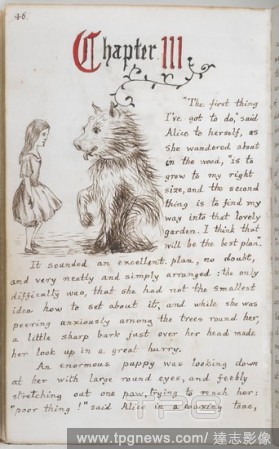 46.
Chapter III
"The first thing
I've got to do," said
Alice to herself, as
she wandered about
in the wood, "is to
grow to my right
size, and the second
thing is to find my
way into that lovely
garden. I think that
will be the best plan."
It sounded an excellent plan, no doubt,
and very neatly and simply arranged: the only
difficulty was, that she had not the smallest
idea how to set about it, and while she was
peering anxiously among the trees round her,
a little sharp bark just over her head made
her look up in a great hurry.
An enormous puppy was looking down
at her with large round eyes, and feebly
stretching out one paw, trying to reach her:
"poor thing!" said Alice in a coaxing tone,
www.tpgnews.com/ 達志影像